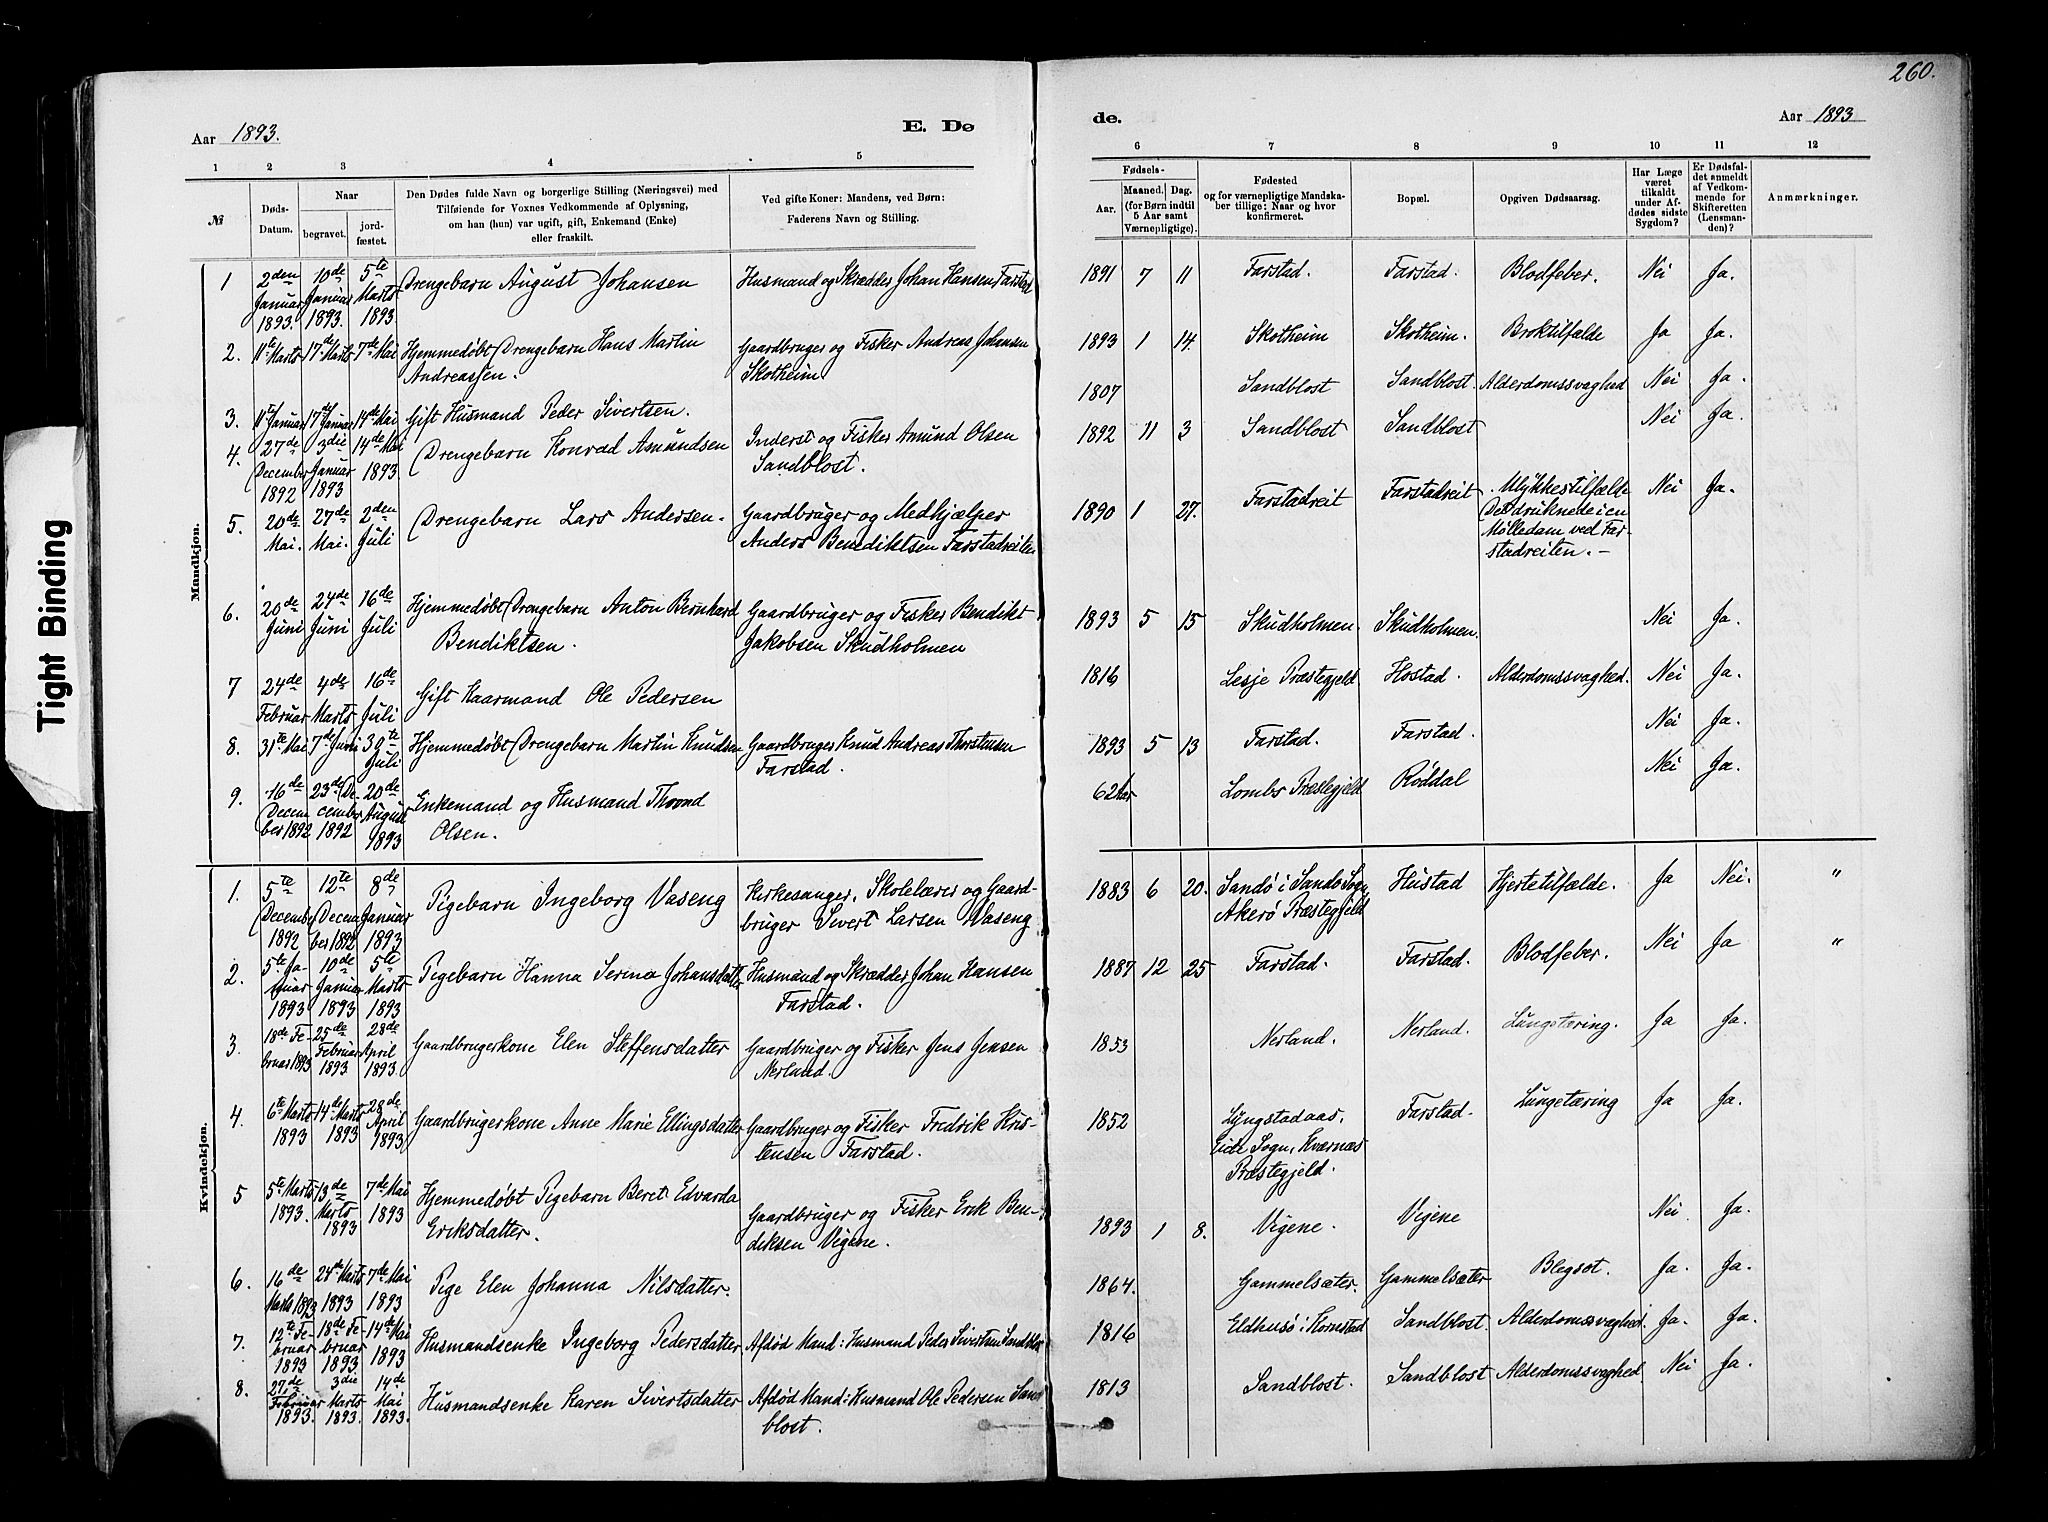 260.
Aar 1893.
E. Dø
de.
Aar 1893
1 2 3 4 5 6 7 8 9 10 11 12
№
Døds-
Datum.
Naar
begravet.
jord-
fæstet.
Den Dødes fulde Navn og borgerlige Stilling (Næringsvei) med
Tilføiende for Voxnes Vedkommende af Oplysning,
om han (hun) var ugift, gift, Enkemand (Enke)
eller fraskilt.
Ved gifte Koner: Mandens, ved Børn:
Faderens Navn og Stilling.
Fødsels-
Aar.
Maaned. Dag.
(for Børn indtil
5 Aar samt
Værnepligtige).
Fødested
og for værnepligtige Mandska-
ber tillige: Naar og hvor
konfirmeret.
Bopæl.
Opgiven Dødsaarsag.
Har Læge
været
tilkaldt
under Af-
dødes sidste
Sygdom?
Er Dødsfal-
det anmeldt
af Vedkom-
mende for
Skifteretten
(Lensman-
den)?
Anmærkninger.
Tight Binding
Mandkjøn.
1 2den Januar 1893. 10de Januar 1893. 5te Marts 1893 Drengebarn August Johansen Husmand og Skrædder Johan Hansen Farstad 1891 7 11 Farstad. Farstad. Blodfeber. Nei Ja.
2. 11te Marts 17de Marts 7de Mai Hjemmedøbt Drengebarn Hans Martin Gaardbruger og Fisker Andreas Johansen 1893 1 14. Skotheim Skotheim. Broktilfælde Ja Ja.
Andreassen. Skotheim
3. 11te Januar 17de Januar 14de Mai Gift Husmand Peder Sivertsen. 1807 Sandblost Sandblost. Alderdomssvaghed Nei Ja.
4. 27de December 1892 3die Januar 1893 14de Mai 1893. Drengebarn Konrad Asmundsen Inderst og Fisker Amund Olsen 1892 11 3 Sandblost Sandblost Nei Ja.
Sandblost.
5. 20de Mai. 27de Mai. 2den Juli Drengebarn Lars Andersen. Gaardbruger og Medhjælper 1890 1 27. Farstadreit Farstadreit Ulykkestilfælde Nei Ja.
Anders Benediktsen Farstadreiten Det druknede i en
Mølledam ved Far-
stadreiten. –
6. 20de Juni 24de Juni 16de Juli Hjemmedøbt Drengebarn Anton Bernhard Gaardbruger og Fisker Bendikt 1893 5 15 Skudholmen. Skudholmen. Nei Ja.
Bendiktsen. Jakobsen Skudholmen
7 24de Februar 4de Marts 16de Juli Gift Kaarmand Ole Pedersen 1816 Lesje Præstegjeld Hostad. Alderdomssvaghed. Nei Ja.
8. 31te Mai 7de Juni 30te Juli Hjemmedøbt Drengebarn Martin Knudsen Gaardbruger Knud Andreas Thorstensen 1893 5 13 Farstad. Farstad. Nei Ja.
Farstad.
9. 16de Decem ber 1892 23de De- cember 1892 20de August 1893 Enkemand og Husmand Thrond 62 Aar Lombs Præstegjeld Røddal Nei Ja.
Olsen.
Kvindekjøn.
1. 5te Decembr 1892 12te Decem ber 1892 8de Januar 1893 Pigebarn Ingeborg Vaseng Kirkesanger, Skolelærer og Gaard- 1883 6 20. Sandø i Sandø Sogn, Hustad Hjertetilfælde. Ja Nei. "
bruger Sivert Larsen Vaseng Akerø Præstegjeld
2. 5te Ja- nuar 1893 10de Januar 1893 5te Marts 1893 Pigebarn Hanna Serina Johansdatter Husmand og Skrædder Johan Hansen 1887 12 25 Farstad. Farstad. Blodfeber. Nei Ja "
Farstad.
3. 18de Fe- bruar 1893 25de Februar 1893 28de April 1893. Gaardbrugerkone Elen Steffensdatter Gaardbruger og Fisker Jens Jensen 1853 Nerland. Nerland. Lungetæring. Ja Ja.
Nerland.
4. 6te Marts 1893 14de Marts 1893 28de April 1893 Gaardbrugerkone Anne Marie Ellingsdatter Gaardbruger og Fisker Fredrik Kris- 1852 Lyngstadaas, Farstad. Lungetæring Ja Ja.
tensen Farstad. Eide Sogn, Kvernæs
Præstegjeld.
5 5te Marts 1893. 13de Marts 1893 7de Mai 1893 Hjemmedøbt Pigebarn Beret Edvarda Gaardbruger og Fisker Erik Ben- 1893 1 8. Vigene. Vigene Nei. Ja.
Eriksdatter. diksen Vigene.
6. 16de Marts 1893 24de Marts 1893 7de Mai 1893 Pige Elen Johanna Nilsdatter. 1864. Gammelsæter. Gammelsæter Blegsot. Ja. Ja.
7. 12te Fe- bruar 1893 18de Fe- bruar 1893 14de Mai 1893 Husmandsenke Ingeborg Pedersdatter Afdød Mand: Husmand Peder Sivertsen Sandblost 1816 Eldhusø i Kornstad Sandblost. Alderdomssvaghed Ja. Ja.
8. 27de Februar 1893. 3die Marts 1893. 14de Mai 1893. Husmandsenke Karen Sivertsdatter Afdød Mand: Husmand Ole Pedersen Sand 1813 Sandblost. Sandblost Alderdomssvaghed Nei Ja.
blost.